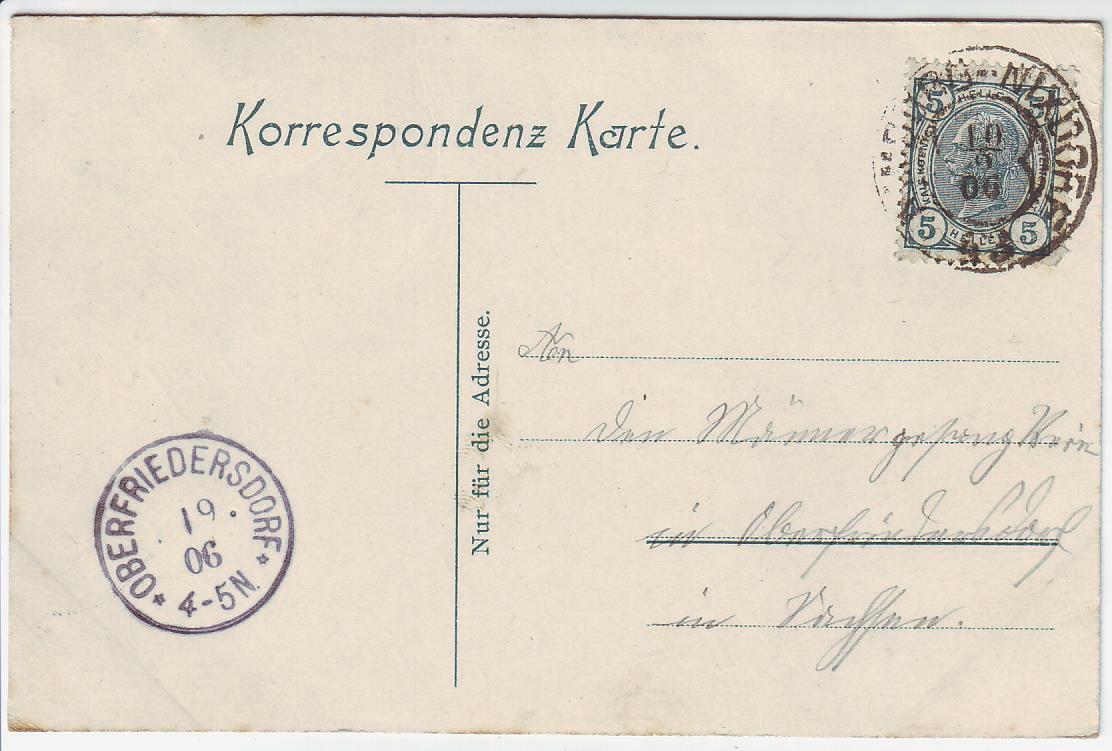 Korrespondenz Karte.
NIXDORF
5 5
HELLER
5 5
10
06
Nur für die Adresse.
An
den Männergesang Verein
in Oberfriedersdorf
in Sachsen.
*OBERFRIEDERSDORF*
19.
06
4-5N.